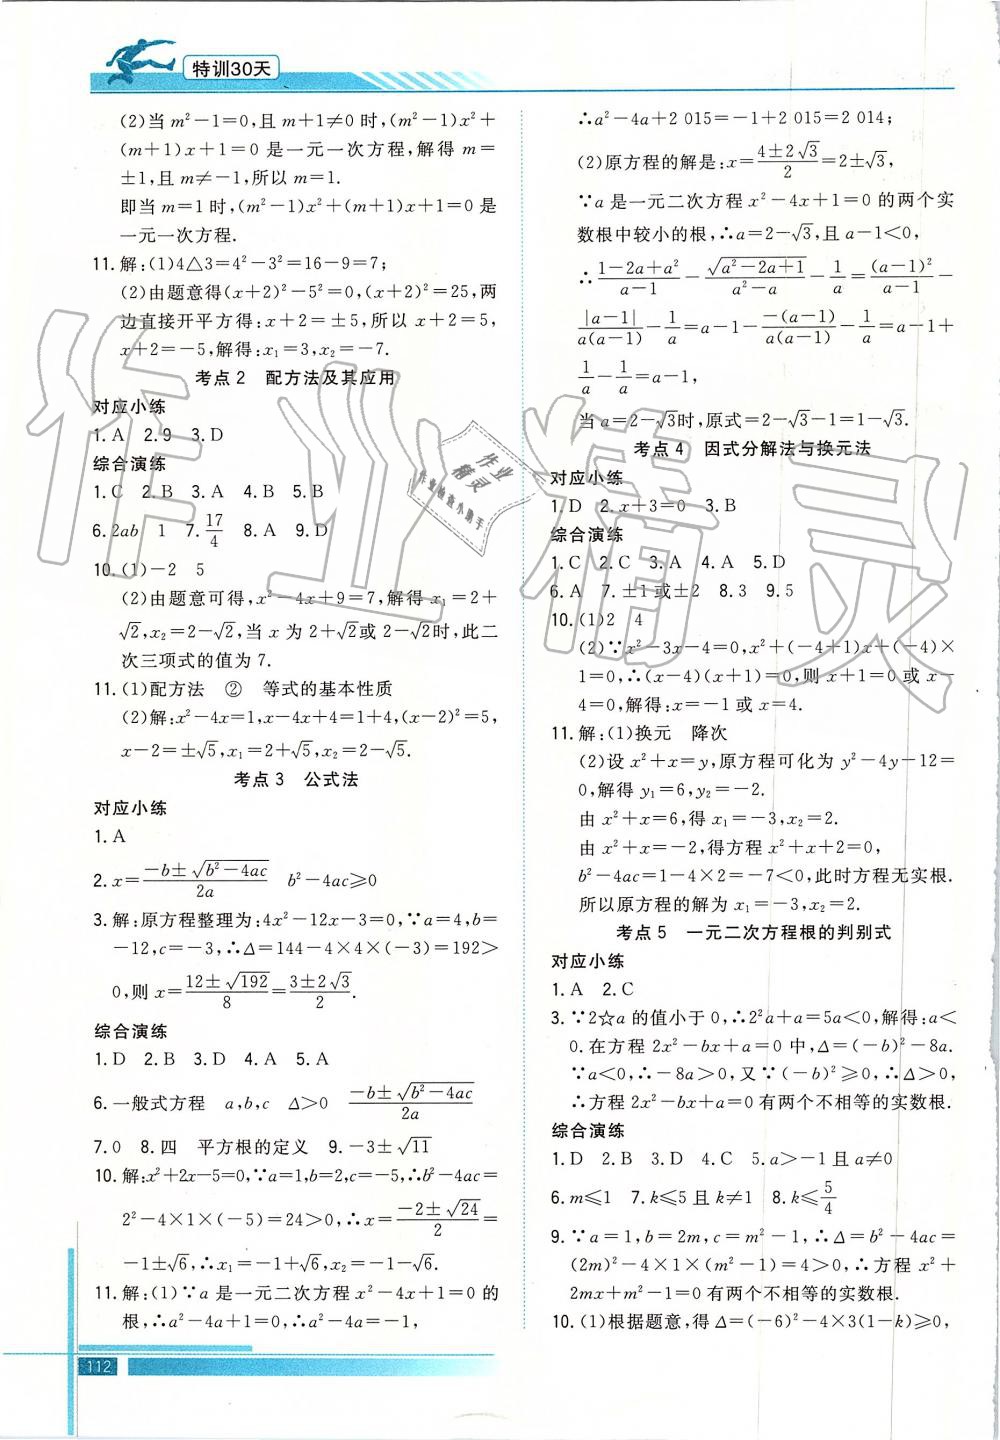 特训30天
(2)当 m²－1＝0,且 m＋1≠0 时,(m²－1)x²＋
(m＋1)x＋1＝0 是一元一次方程,解得 m＝
±1,且 m≠－1,所以 m＝1.
即当 m＝1 时,(m²－1)x²＋(m＋1)x＋1＝0 是
一元一次方程.
11. 解:(1)4△3＝4²－3²＝16－9＝7;
(2)由题意得(x＋2)²－5²＝0,(x＋2)²＝25,两
边直接开平方得:x＋2＝±5,所以 x＋2＝5,
x＋2＝－5,解得:x₁＝3,x₂＝－7.
考点2 配方法及其应用
对应小练
1. A 2. 9 3. D
综合演练
1. C 2. B 3. A 4. B 5. B
6. 2ab 1 7. 17/4 8. A 9. D
10. (1)－2 5
(2)由题意可得,x²－4x＋9＝7,解得 x₁＝2＋
√2,x₂＝2－√2,当 x 为 2＋√2或 2－√2时,此二
次三项式的值为 7.
11. (1)配方法 ② 等式的基本性质
(2)解:x²－4x＝1,x－4x＋4＝1＋4,(x－2)²＝5,
x－2＝±√5,x₁＝2＋√5,x₂＝2－√5.
考点3 公式法
对应小练
1. A
2. x＝(－b±√(b²－4ac))/2a b²－4ac≥0
3. 解:原方程整理为:4x²－12x－3＝0,∵a＝4,b＝
－12,c＝－3,∴Δ＝144－4×4×(－3)＝192＞
0,则 x＝(12±√192)/8＝(3±2√3)/2.
综合演练
1. D 2. B 3. D 4. A 5. A
6. 一般式方程 a,b,c Δ＞0 (－b±√(b²－4ac))/2a
7. 0 8. 四 平方根的定义 9. －3±√11
10. 解:x²＋2x－5＝0,∵a＝1,b＝2,c＝－5,∴b²－4ac＝
2²－4×1×(－5)＝24＞0,∴x＝(－2±√24)/2＝
－1±√6,∴x₁＝－1＋√6,x₂＝－1－√6.
11. 解:(1)∵a 是一元二次方程 x²－4x＋1＝0 的
根,∴a²－4a＋1＝0,∴a²－4a＝－1,
112
∴a²－4a＋2 015＝－1＋2 015＝2 014;
(2)原方程的解是:x＝(4±2√3)/2＝2±√3,
∵a 是一元二次方程 x²－4x＋1＝0 的两个实
数根中较小的根,∴a＝2－√3,且 a－1＜0,
∴(1－2a＋a²)/(a－1)－√(a²－2a＋1)/(a²－a)－1/a＝(a－1)²/(a－1)－
|a－1|/a(a－1)－1/a＝a－1－－(a－1)/a(a－1)－1/a＝a－1＋
1/a－1/a＝a－1,
当 a＝2－√3时,原式＝2－√3－1＝1－√3.
考点4 因式分解法与换元法
对应小练
1. D 2. x＋3＝0 3. B
综合演练
1. C 2. C 3. A 4. A 5. D
6. A 7. ±1 或±2 8. 3 9. 5
10. (1)2 4
(2)∵x²－3x－4＝0,x²＋(－4＋1)x＋(－4)×
1＝0,∴(x－4)(x＋1)＝0,则 x＋1＝0 或 x－
4＝0,解得:x＝－1 或 x＝4.
11. 解:(1)换元 降次
(2)设 x²＋x＝y,原方程可化为 y²－4y－12＝
0,解得 y₁＝6,y₂＝－2.
由 x²＋x＝6,得 x₁＝－3,x₂＝2.
由 x²＋x＝－2,得方程 x²＋x＋2＝0,
b²－4ac＝1－4×2＝－7＜0,此时方程无实根.
所以原方程的解为 x₁＝－3,x₂＝2.
考点5 一元二次方程根的判别式
对应小练
1. A 2. C
3. ∵2☆a 的值小于 0,∴2²a＋a＝5a＜0,解得:a＜
0. 在方程 2x²－bx＋a＝0 中,Δ＝(－b)²－8a.
∵a＜0,∴－8a＞0,又∵(－b)²≥0,∴Δ＞0,
∴方程 2x²－bx＋a＝0 有两个不相等的实数根.
综合演练
1. D 2. B 3. D 4. C 5. a＞－1 且 a≠0
6. m≤1 7. k≤5 且 k≠1 8. k≤5/4
9. ∵a＝1,b＝2m,c＝m²－1,∴Δ＝b²－4ac＝
(2m)²－4×1×(m²－1)＝4＞0,∴方程 x²＋
2mx＋m²－1＝0 有两个不相等的实数根.
10. (1)根据题意,得 Δ＝(－6)²－4×3(1－k)≥0,
作业精灵
作业
精灵
作业检查小助手